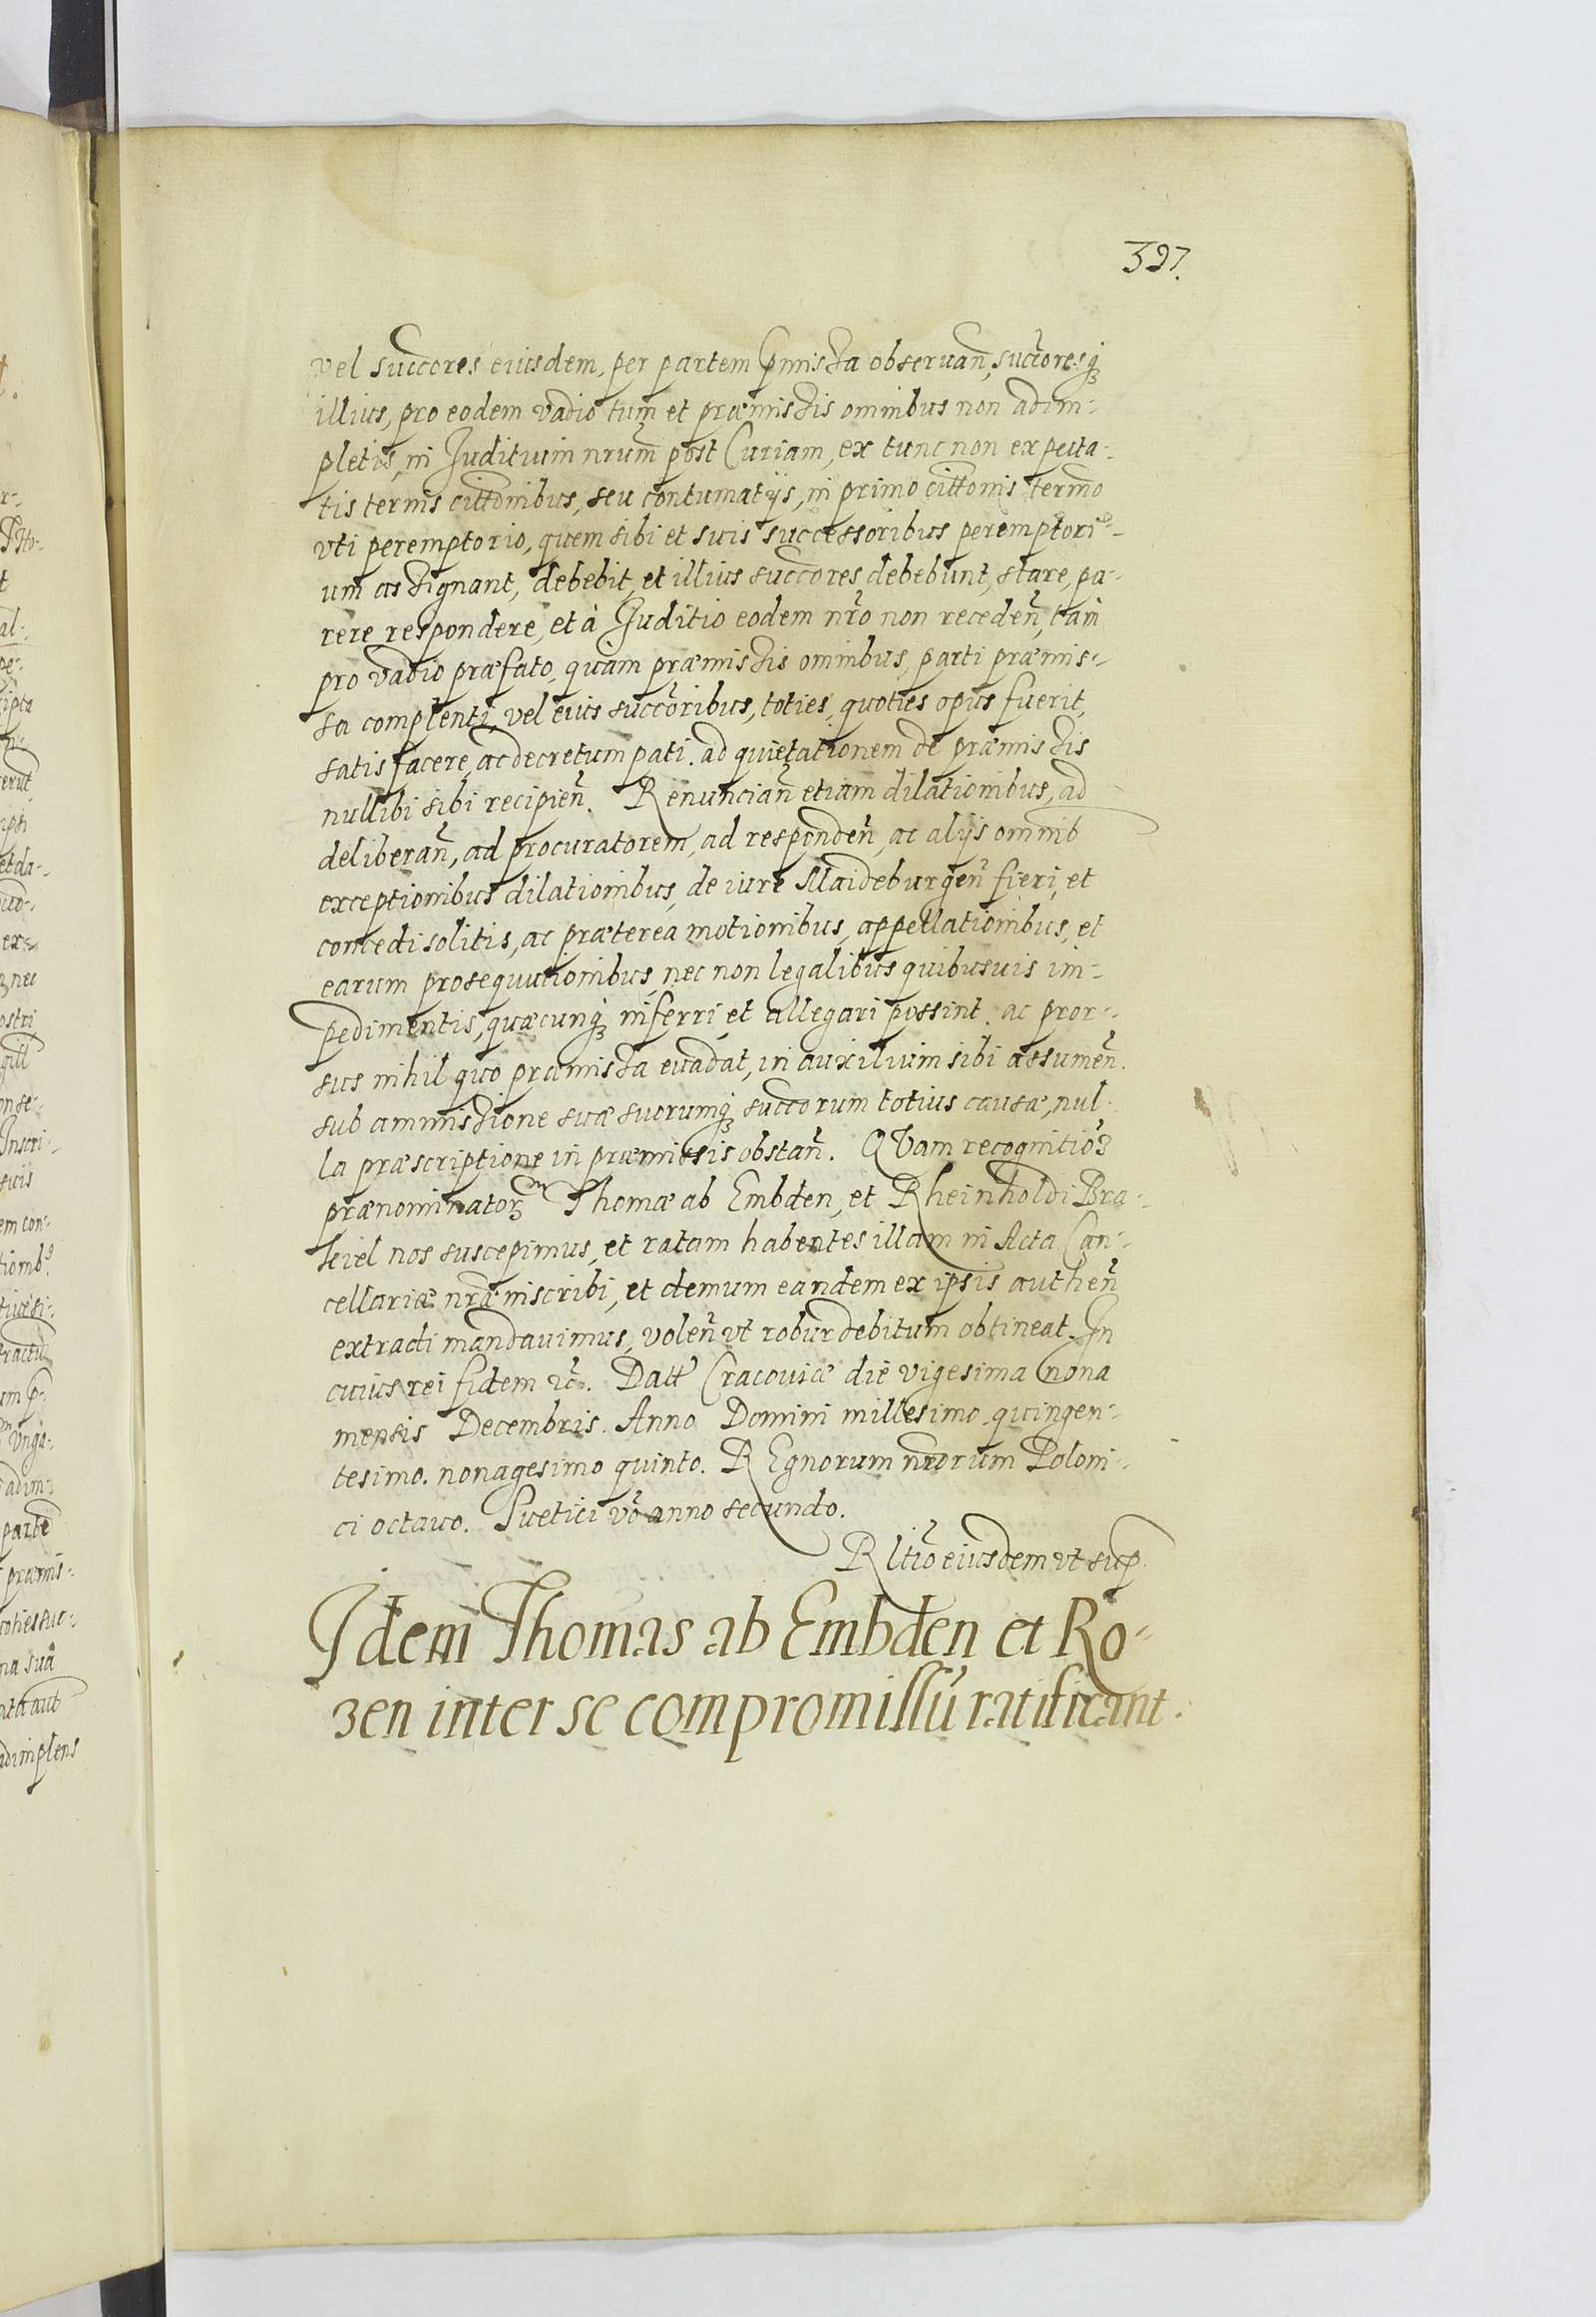 397.
vel succores eiusdem, per partem pmissa obseruan̄, succoresq́
illius, pro eodem vadio tum et præmissis omnibus non adim-
pletis, in Juditium nrum post Curiam, ex tunc non expecta-
tis ternis cittonibus, seu contumatijs, in primo cittonis termo
vti peremptorio, quem sibi et suis successoribus peremptori-
um assignant, debebit, et illius succores debebunt, stare, pa-
rere respondere, et à Juditio eodem nro non receden̄, tam
pro vadio præfato, quam præmissis omnibus, parti præmis-
sa complenti, vel eius succoribus, toties, quoties opus fuerit,
satisfacere, ac decretum pati. ad quietationem de præmissis
nullibi sibi recipien̄. Renuncian̄ etiam dilationibus, ad
deliberan̄, ad procuratorem, ad responden̄, ac alijs omnib
exceptionibus dilationibus, de iure Maideburgen̄ fieri, et
concedi solitis, ac præterea motionibus, appellationibus, et
earum prosequutionibus, nec non legalibus quibusuis im-
pedimentis, quæcunq́ inferri, et allegari possint. ac pror-
sus nihil quo præmissa euadat, in auxilium sibi assumen̄.
sub ammissione suæ suorumq́ succorum totius causæ, nul-
la præscriptione in præmissis obstan̄. QVam recognitioꝫ
prænominatoꝝ Thomæ ab Embden, et Rheinholdi Bra-
kiel nos suscepimus, et ratam habentes illam in Acta Can-
cellariæ nræ inscribi, et demum eandem ex ipsis authen̄
extradi mandauimus, volen̄ vt robur debitum obtineat. In
cuius rei fidem ꝛc̃. Datt Cracouiæ die vigesima nona
mensis Decembris. Anno Domini millesimo quingen-
tesimo. nonagesimo quinto. REgnorum nrorum Poloni-
ci octauo. Suetici vo anno secundo.
Rltio eiusdem vt sup.
Idem Thomas ab Embden et Ro-
zen inter se compromissū ratificant.